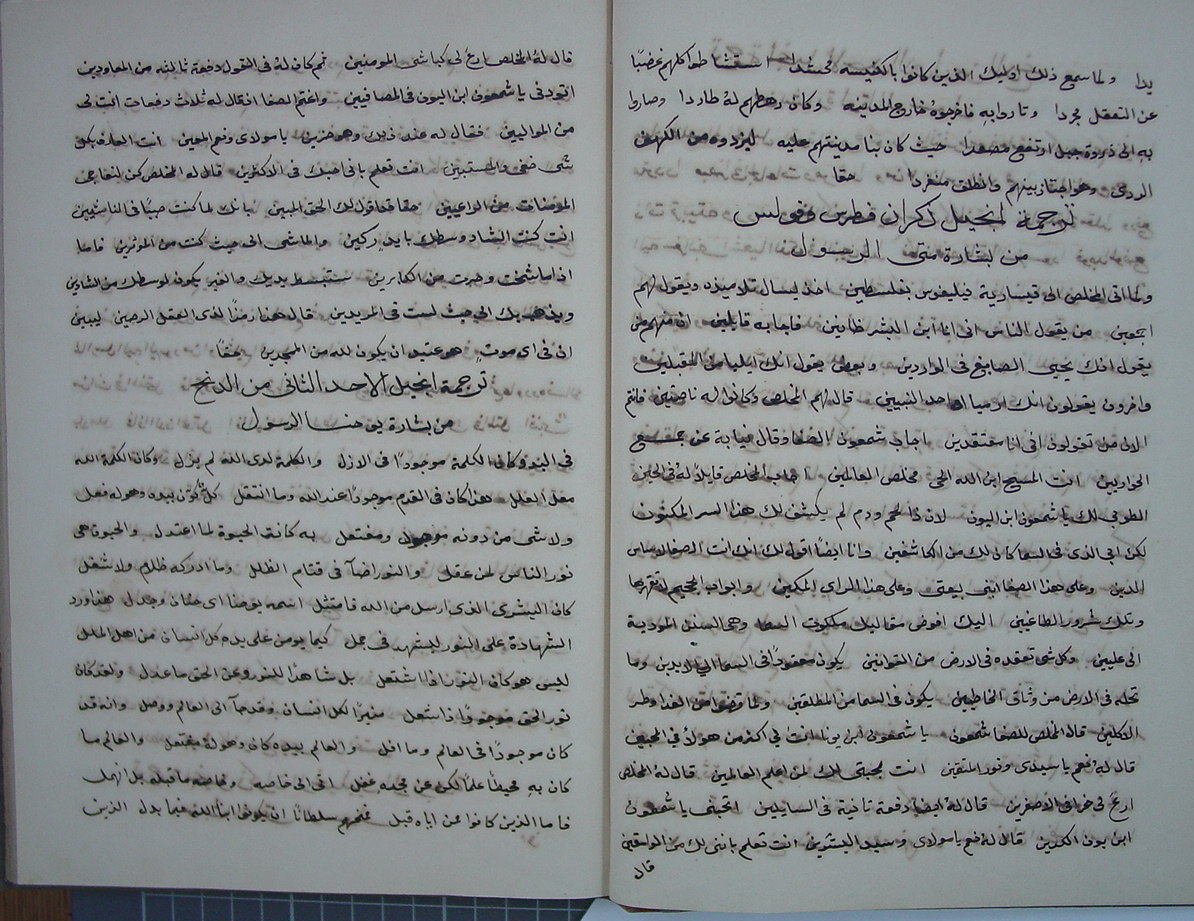 يدا ولما سمع ذلك اوليك الذين كانوا بالكنيسه استشاطوا كلهم غضبًا
عن التعقل مجردا وثاروا به فاخرجوه خارج المدينه وكان رهطهم له طاردا وصاروا
به الى ذروة جبل ارتفع مصعدا حيث كان بنا مدينتهم عليه ليزدوه من الكهف
الردى وهو اجتاز بينهم وانطلق منفردا حقا
ترجمة انجيل ذكران فطرس وفولس
من بشارة متى الرسول
ولما اتى المخلص الى قيسارية فيليفوس بفلسطين اخذ ليسال تلاميذه ويقول لهم
اجمعين من يقول الناس انى انا ابن البشر ظانين فاجابه قايلين ان منهم من
يقول انك يحيى الصابغ فى الواردين وبعض يقول انك ايليا من المقبلين
واخرون يقولون انك ارميا او احد النبيين قال لهم المخلص وكانوا له ناصتين فانتم
الان من تقولون انى انا معتقدين اجاب شمعون الصفا وقال نيابة عن جميع
الحواريين انت المسيح ابن الله الحى مخلص العالمين اجاب المخلص قايلاً له فى الحين
الطوبى لك يا شمعون ابن اليون لان ذا لحم ودم لم يكشف لك هذا السر المكنون
لكن ابى الذى فى السما كان لك من الكاشفين وانا ايضًا اقول لك انك انت الصفا لاساس
الدين وعلى هذا الصفا ابنى بيعتى وعلى هذا الراى المكين وابواب الجحيم لا تقهرها
وتلك شرور الطاغيين اليك افوض مقاليد ملكوت السما وهى السنن المودية
الى عليين وكل شى تعقده فى الارض من القوانين يكون معقودًا فى السما الى الابدين وما
تحله فى الارض من وثاق الخاطيين يكون فى السما من المطلقين ولما قضوا من الغدا وطر
الاكلين قال المخلص للصفا شمعون يا شمعون ابن يونا انت لى اكثر من هولاء فى المحبين
قال له نعم يا سيدى ونور المتقين انت بمحبتى لك لمن اعلم العالمين قال له المخلص
ارع لى خرافى الاصغرين قال له ايضا دفعة ثانية فى السايلين اتحبنى يا شمعون
ابن يون الكدين قال له نعم يا مولاى وسيد البشريين انت تعلم بانى لك من الوامقين
قال
قال له المخلص ارع لى كباشى المومنين ثم كان له فى القول دفعة ثالثه من المعاودين
اتودنى يا شمعون ابن اليون فى المصافيين واغتم الصفا ان قال له ثلاث دفعات انت لى
من المواليين فقال له عند ذلك وهو حزين يا مولاى ونعم المعين انت العارف بكل
شى خفى والمستبين انت تعلم بانى احبك فى الاكثرين قال له المخلص كن لنعاجى
المومنات من الراعيين حقا حقا اقول لك الحق المبين بانك لما كنت صبيًا فى الناشيين
انت كنت الشاد وسطك بايد ركين والماشى الى حيث كنت من الموثرين فاما
اذا ما شخت وصرت من الكابرين ستبسط يديك والغير يكون لوسطك من الشادين
ويذهب بك الى حيث لست فى المريدين قال هذا رمزًا لذى العقل الرصين ليبين
الى فى اى موت هو عتيد ان يكون لله من الممجدين حقًا
ترجمة انجيل الاحد الثانى من الدنح
من بشارة يوحنا الرسول
فى البدو كان الكلمة موجودًا فى الازل والكلمة لدى الله لم يزل وكان الكلمة الله
معل العلل هذا كان فى القدم موجودًا عند الله وما انتقل كل كوّن بيده وهو له فعل
ولا شى من دونه موجود ومفتعل به كانت الحيوة لما اعتدل والحيوة هى
نور الناس لمن عقل والنور اضآ فى قتام الظلل وما ادركه ظلام ولا شغل
كان البشرى الذى ارسل من الله فامتثل اسمه يوحنا اى حنان وجدل هذا ورد
الشهادة على النور ليشهد فى عمل كيما يومن على يده كل انسان من اهل الملل
ليس هو كان النور اذا اشتعل بل شاهدًا للنور وعن الحق ما عدل ولقد كان
نور الحق موجودًا اذ اشتعل منيرًا لكل انسان وقد جآ الى العالم ووصل وانه قد
كان موجودًا فى العالم وما افل والعالم بيده كان وهو له مفتعل والعالم ما
كان به محيطًا علمًا لكن عن مجده غفل اتى الى خاصه وخاصه ما قبله بل انهمل
فاما الذين كانوا ممن اياه قبل فمنحهم سلطانًا ان يكونوا ابنا الله فيما بدل الذين